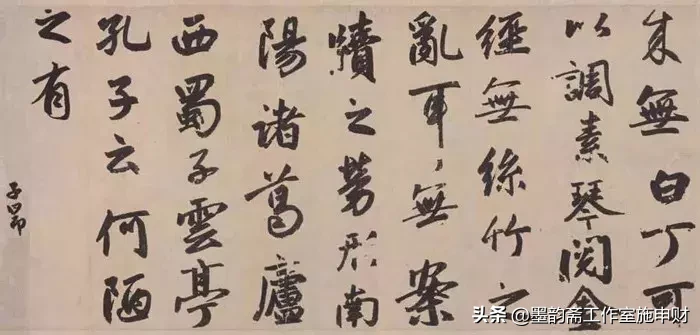 来無白丁可
以調素琴閱金
經無絲竹之
亂耳無案
牘之勞形南
陽諸葛廬
西蜀子雲亭
孔子云何陋
之有
子昂
头条 @墨韵斋工作室施申财